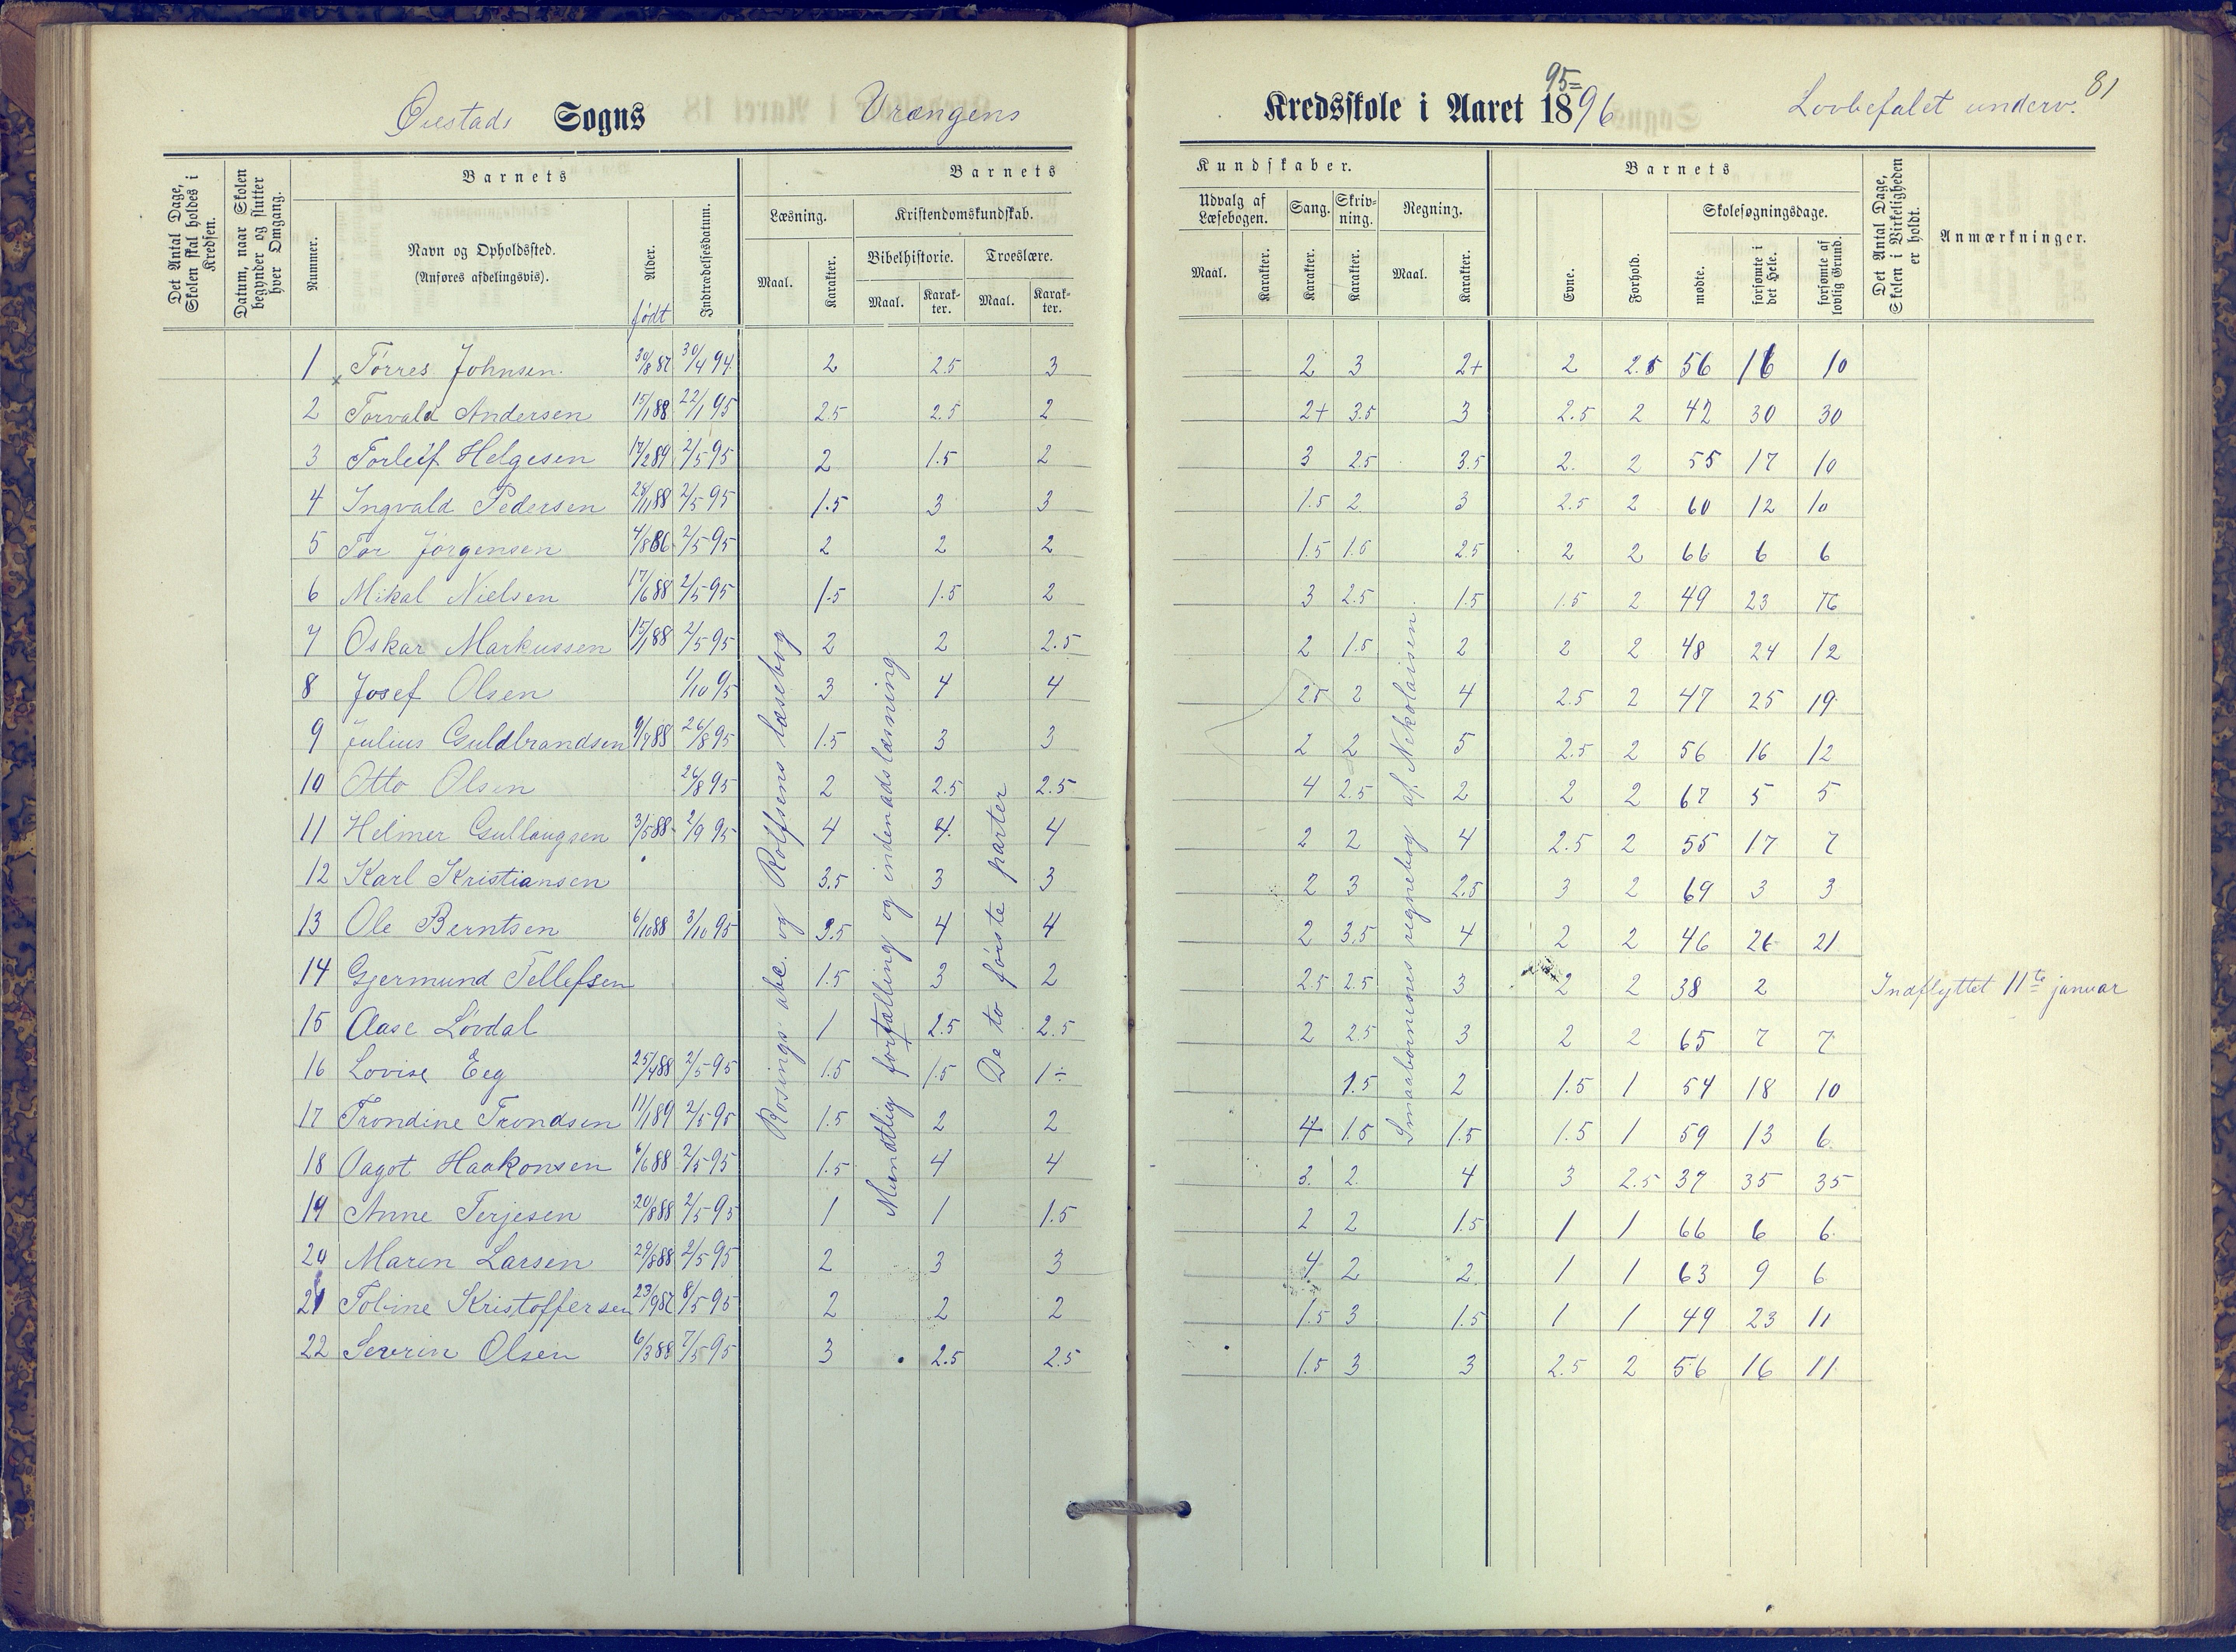 Øiestads Sogns Vrængens Kredsskole i Aaret 1895=96 Lovbefalet underv. 81
Det Antal Dage, Skolen skal holdes i Kredsen.
Datum, naar Skolen begynder og slutter hver Omgang.
Barnets
Nummer.
Navn og Opholdssted.
(Anføres afdelingsvis).
Alder.
født
Indtrædelsesdatum.
Barnets
Læsning.
Maal.
Karakter.
Kristendomskundskab.
Bibelhistorie.
Maal.
Karak-
ter.
Troeslære.
Maal.
Karak-
ter.
Kundskaber.
Udvalg af
Læsebogen.
Maal.
Karakter.
Sang.
Karakter.
Skriv-
ning.
Karakter.
Regning.
Maal.
Karakter.
Barnets
Evne.
Forhold.
Skolesøgningsdage.
mødte.
forsømte i det Hele.
forsømte af lovlig Grund.
Det Antal Dage, Skolen i Virkeligheden er holdt.
Anmærkninger.
1 Tørres Johnsen 30/8 87 30/4 94 2 2.5 3 2 3 2+ 2 2.5 56 16 10
2 Torvald Andersen 15/1 88 22/1 95 2.5 2.5 2 2+ 3.5 3 2.5 2 42 30 30
3 Torleif Helgesen 17/2 89 2/5 95 2 1.5 2 3 2.5 3.5 2 2 55 17 10
4 Ingvald Pedersen 28/11 88 2/5 95 1.5 3 3 1.5 2 3 2.5 2 60 12 10
5 Tor Jørgensen 4/8 86 2/5 95 2 2 2 1.5 1.5 2.5 2 2 66 6 6
6 Mikal Nielsen 17/6 88 2/5 95 1.5 1.5 2 3 2.5 1.5 1.5 2 49 23 16
7 Oskar Markussen 15/1 88 2/5 95 2 2 2.5 2 1.5 2 2 2 48 24 12
8 Josef Olsen 1/10 95 3 4 4 2.5 2 4 2.5 2 47 25 19
9 Julius Guldbrandsen 9/7 88 26/8 95 1.5 3 3 2 2 5 2.5 2 56 16 12
10 Otto Olsen 26/8 95 2 2.5 2.5 4 2.5 2 2 2 67 5 5
11 Helmer Gullaugsen 3/5 88 2/9 95 4 4 4 2 2 4 2.5 2 55 17 7
12 Karl Kristiansen 3.5 3 3 2 3 2.5 3 2 69 3 3
13 Ole Berntsen 6/10 88 3/10 95 3.5 4 4 2 3.5 4 2 2 46 26 21
14 Gjermund Tellefsen 1.5 3 2 2.5 2.5 3 2 2 38 2 Indflyttet 11te januar
15 Aase Løvdal 1 2.5 2.5 2 2.5 3 2 2 65 7 7
16 Lovise Eeg 25/4 88 2/5 95 1.5 1.5 1÷ 1.5 2 1.5 1 54 18 10
17 Trondine Trondsen 11/1 89 2/5 95 1.5 2 2 4 1.5 1.5 1.5 1 59 13 6
18 Dagot Haakonsen 6/6 88 2/5 95 1.5 4 4 3 2 4 3 2.5 37 35 35
19 Anne Terjesen 20/8 88 2/5 95 1 1 1.5 2 2 1.5 1 1 66 6 6
20 Maren Larsen 29/8 88 2/5 95 2 3 3 4 2 2 1 1 63 9 6
21 Tobine Kristoffersen 23/9 87 8/5 95 2 2 2 1.5 3 1.5 1 1 49 23 11
22 Severin Olsen 6/3 88 7/5 95 3 2.5 2.5 1.5 3 3 2.5 2 56 16 11
Rosings abc. og Rolfsens læsebog
Mundtlig fortælling og indenadslæsning
De to første parter
Smaabørnenes regnebog af Nikolaisen.